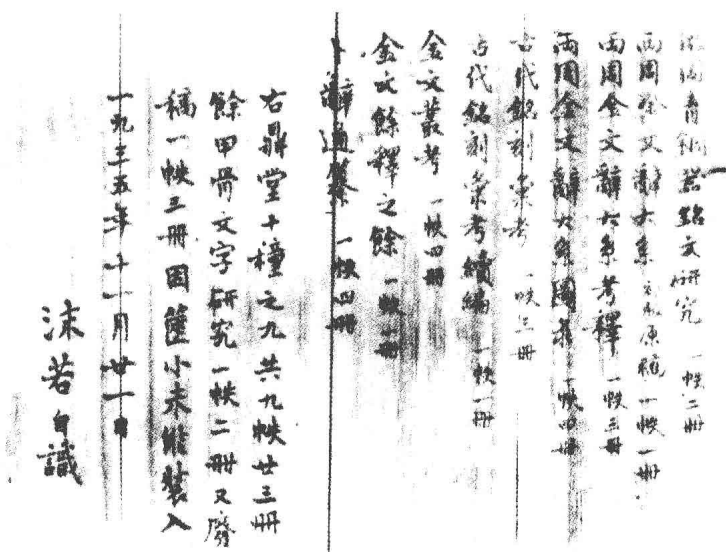 殷周青銅器銘文研究 一帙二冊
兩周金文辭大系 原稿 一帙一冊
兩周金文辭大系考釋 一帙三冊
兩周金文辭大系圖录 一帙四冊
古代銘刻彙考 一帙三冊
古代銘刻彙考續編 一帙一冊
金文叢考 一帙四冊
金文餘釋之餘 一帙一冊
卜辭通纂 一帙四冊
右鼎堂十種之九共九帙廿三冊
餘甲骨文字研究一帙二冊又廢
稿一帙三冊因篋小未能裝入
一九三五年十一月廿一日
沫若自識